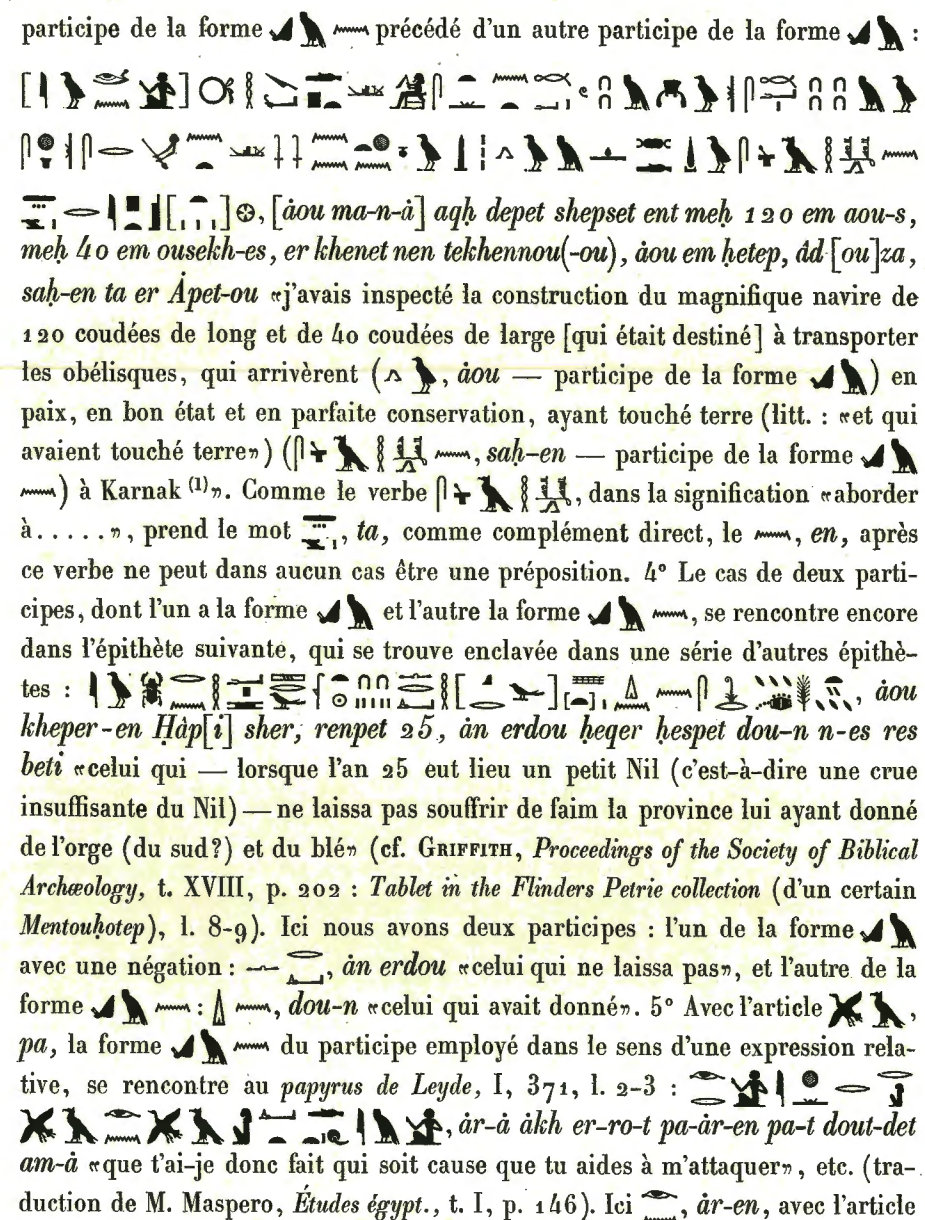 participe de la forme précédé d'un autre participe de la forme :
, [ȧou ma-n-ȧ] aqḥ depet shepset ent meḥ 120 em aou-s,
meḥ 40 em ousekh-es, er khenet nen tekhennou(-ou), ȧou em ḥetep, âd-[ou]za,
saḥ-en ta er Ȧpet-ou «j'avais inspecté la construction du magnifique navire de
120 coudées de long et de 40 coudées de large [qui était destiné] à transporter
les obélisques, qui arrivèrent ( , ȧou — participe de la forme ) en
paix, en bon état et en parfaite conservation, ayant touché terre (litt. : «et qui
avaient touché terre») ( , saḥ-en — participe de la forme
) à Karnak (1)». Comme le verbe , dans la signification «aborder
à.....», prend le mot , ta, comme complément direct, le , en, après
ce verbe ne peut dans aucun cas être une préposition. 4° Le cas de deux parti-
cipes, dont l'un a la forme et l'autre la forme , se rencontre encore
dans l'épithète suivante, qui se trouve enclavée dans une série d'autres épithè-
tes : , ȧou
kheper-en Ḥâp[i] sher, renpet 25, ȧn erdou ḥeqer ḥespet dou-n n-es res
beti «celui qui — lorsque l'an 25 eut lieu un petit Nil (c'est-à-dire une crue
insuffisante du Nil) — ne laissa pas souffrir de faim la province lui ayant donné
de l'orge (du sud?) et du blé» (cf. GRIFFITH, Proceedings of the Society of Biblical
Archæology, t. XVIII, p. 202 : Tablet in the Flinders Petrie collection (d'un certain
Mentouḥotep), l. 8-9). Ici nous avons deux participes : l'un de la forme
avec une négation : , ȧn erdou «celui qui ne laissa pas», et l'autre de la
forme : , dou-n «celui qui avait donné». 5° Avec l'article ,
pa, la forme du participe employé dans le sens d'une expression rela-
tive, se rencontre au papyrus de Leyde, I, 371, l. 2-3 :
, ȧr-ȧ ȧkh er-ro-t pa-ȧr-en pa-t dout-det
am-ȧ «que t'ai-je donc fait qui soit cause que tu aides à m'attaquer», etc. (tra-
duction de M. Maspero, Études égypt., t. I, p. 146). Ici , ȧr-en, avec l'article